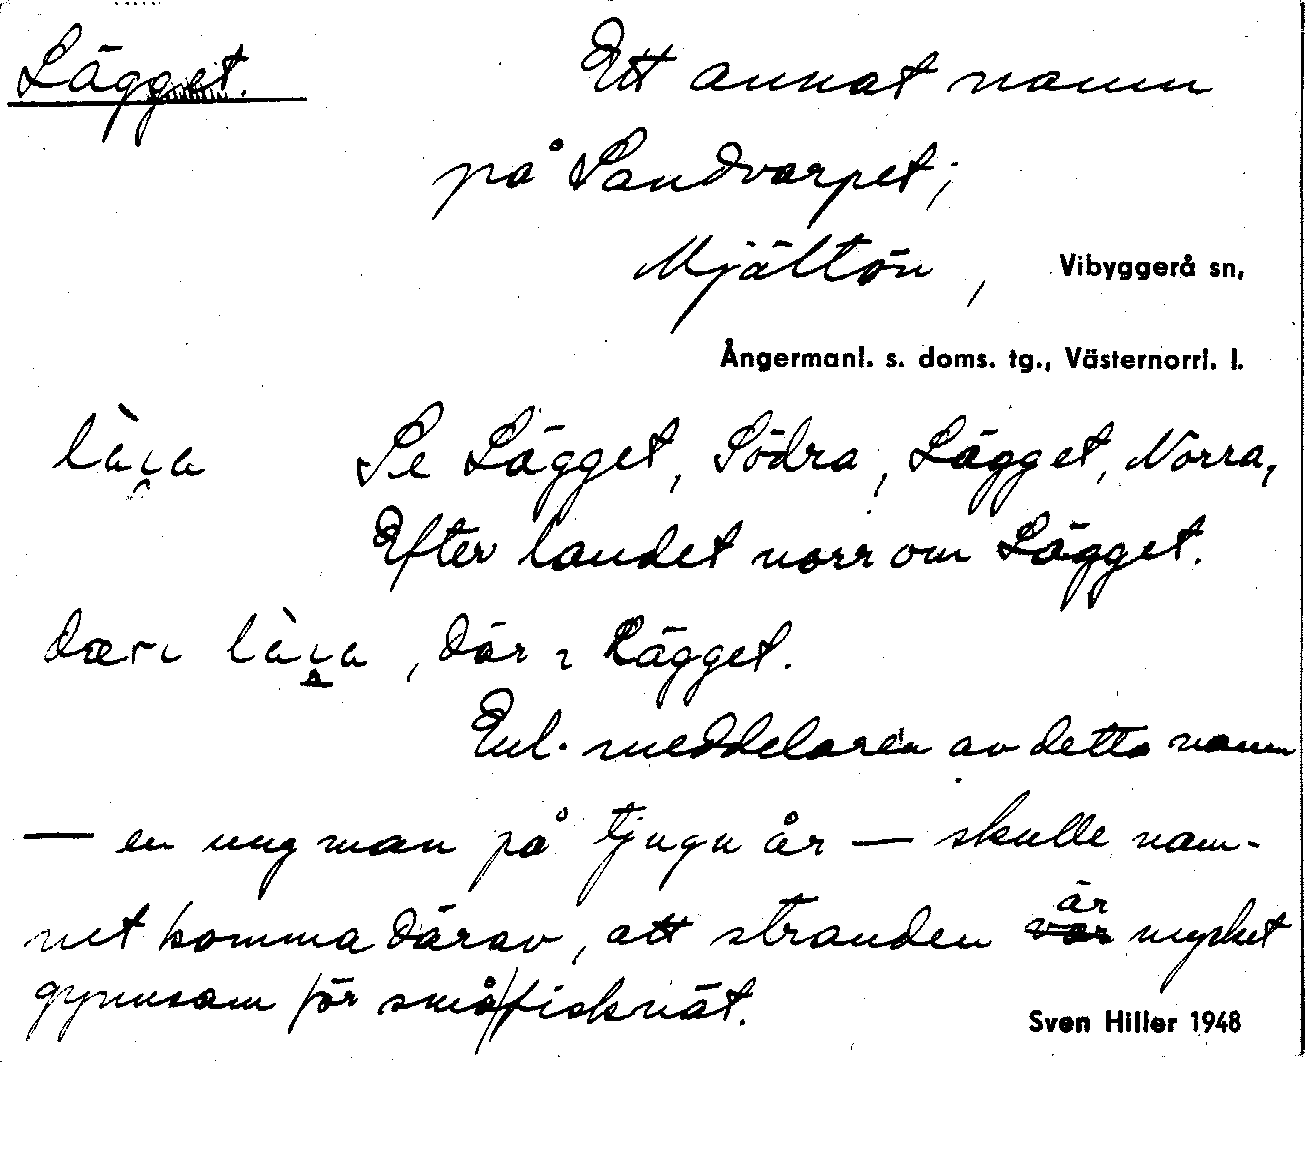 Lägget. Ett annat namn
på Sandvarpet;
Mjältön, Vibyggerå sn,
Ångermanl. s. doms. tg., Västernorrl. l.
Se Lägget, Södra, Lägget, Norra,
Efter landet norr om Lägget.
där i Lägget.
Enl. meddelaren av detta namn
— en ung man på tjugu år — skulle nam-
net komma därav, att stranden är mycket
gynnsam för småfisknät.
Sven Hiller 1948